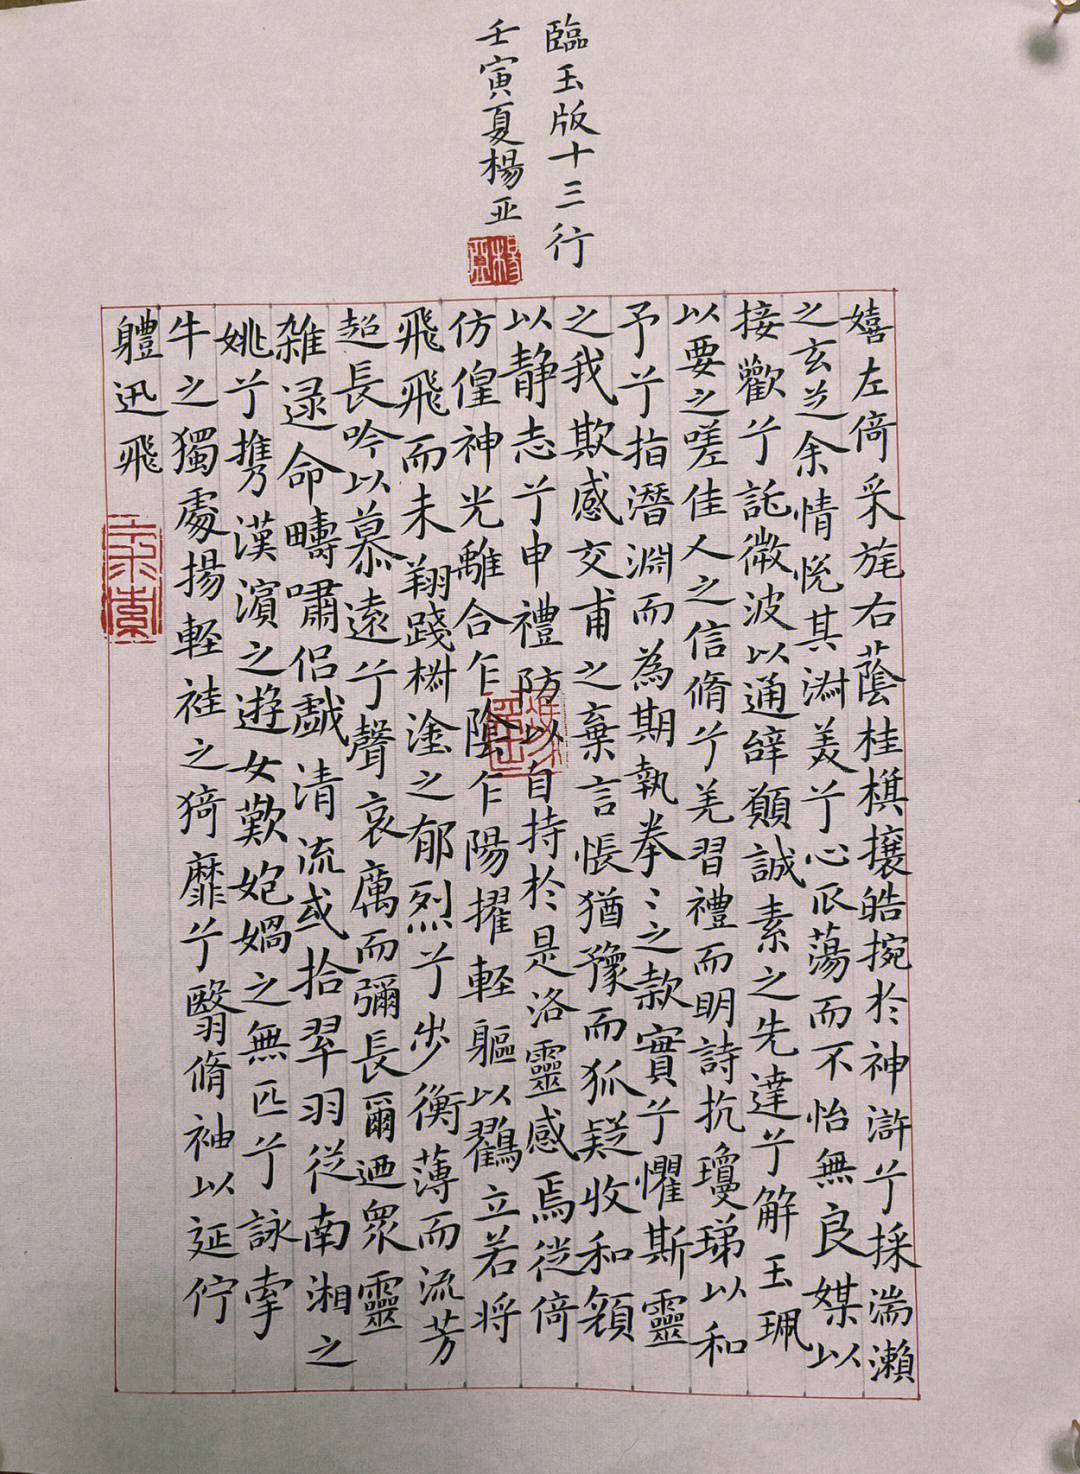 臨玉版十三行
壬寅夏楊亚
嬉左倚采旄右蔭桂棋攘皓捥於神滸兮採湍瀨
之玄芝余情悅其淑美兮心振蕩而不怡無良媒以
接歡兮託微波以通辭願誠素之先達兮解玉珮
以要之嗟佳人之信脩兮羌習禮而明詩抗瓊珶以和
予兮指潛淵而為期執拳〻之款實兮懼斯靈
之我欺感交甫之棄言悵猶豫而狐疑收和顏
以静志兮申禮防以自持於是洛靈感焉從倚
仿偟神光離合乍陰乍陽擢軽軀以鶴立若将
飛飛而未翔踐椒塗之郁烈兮步衡薄而流芳
超長吟以慕遠兮聲哀厲而彌長爾迺眾靈
雜遝命疇嘯侶戲清流或拾翠羽從南湘之
姚兮携漢濱之遊女歎匏媧之無匹兮詠牽
牛之獨處揚軽袿之猗靡兮翳脩袖以延佇
軆迅飛